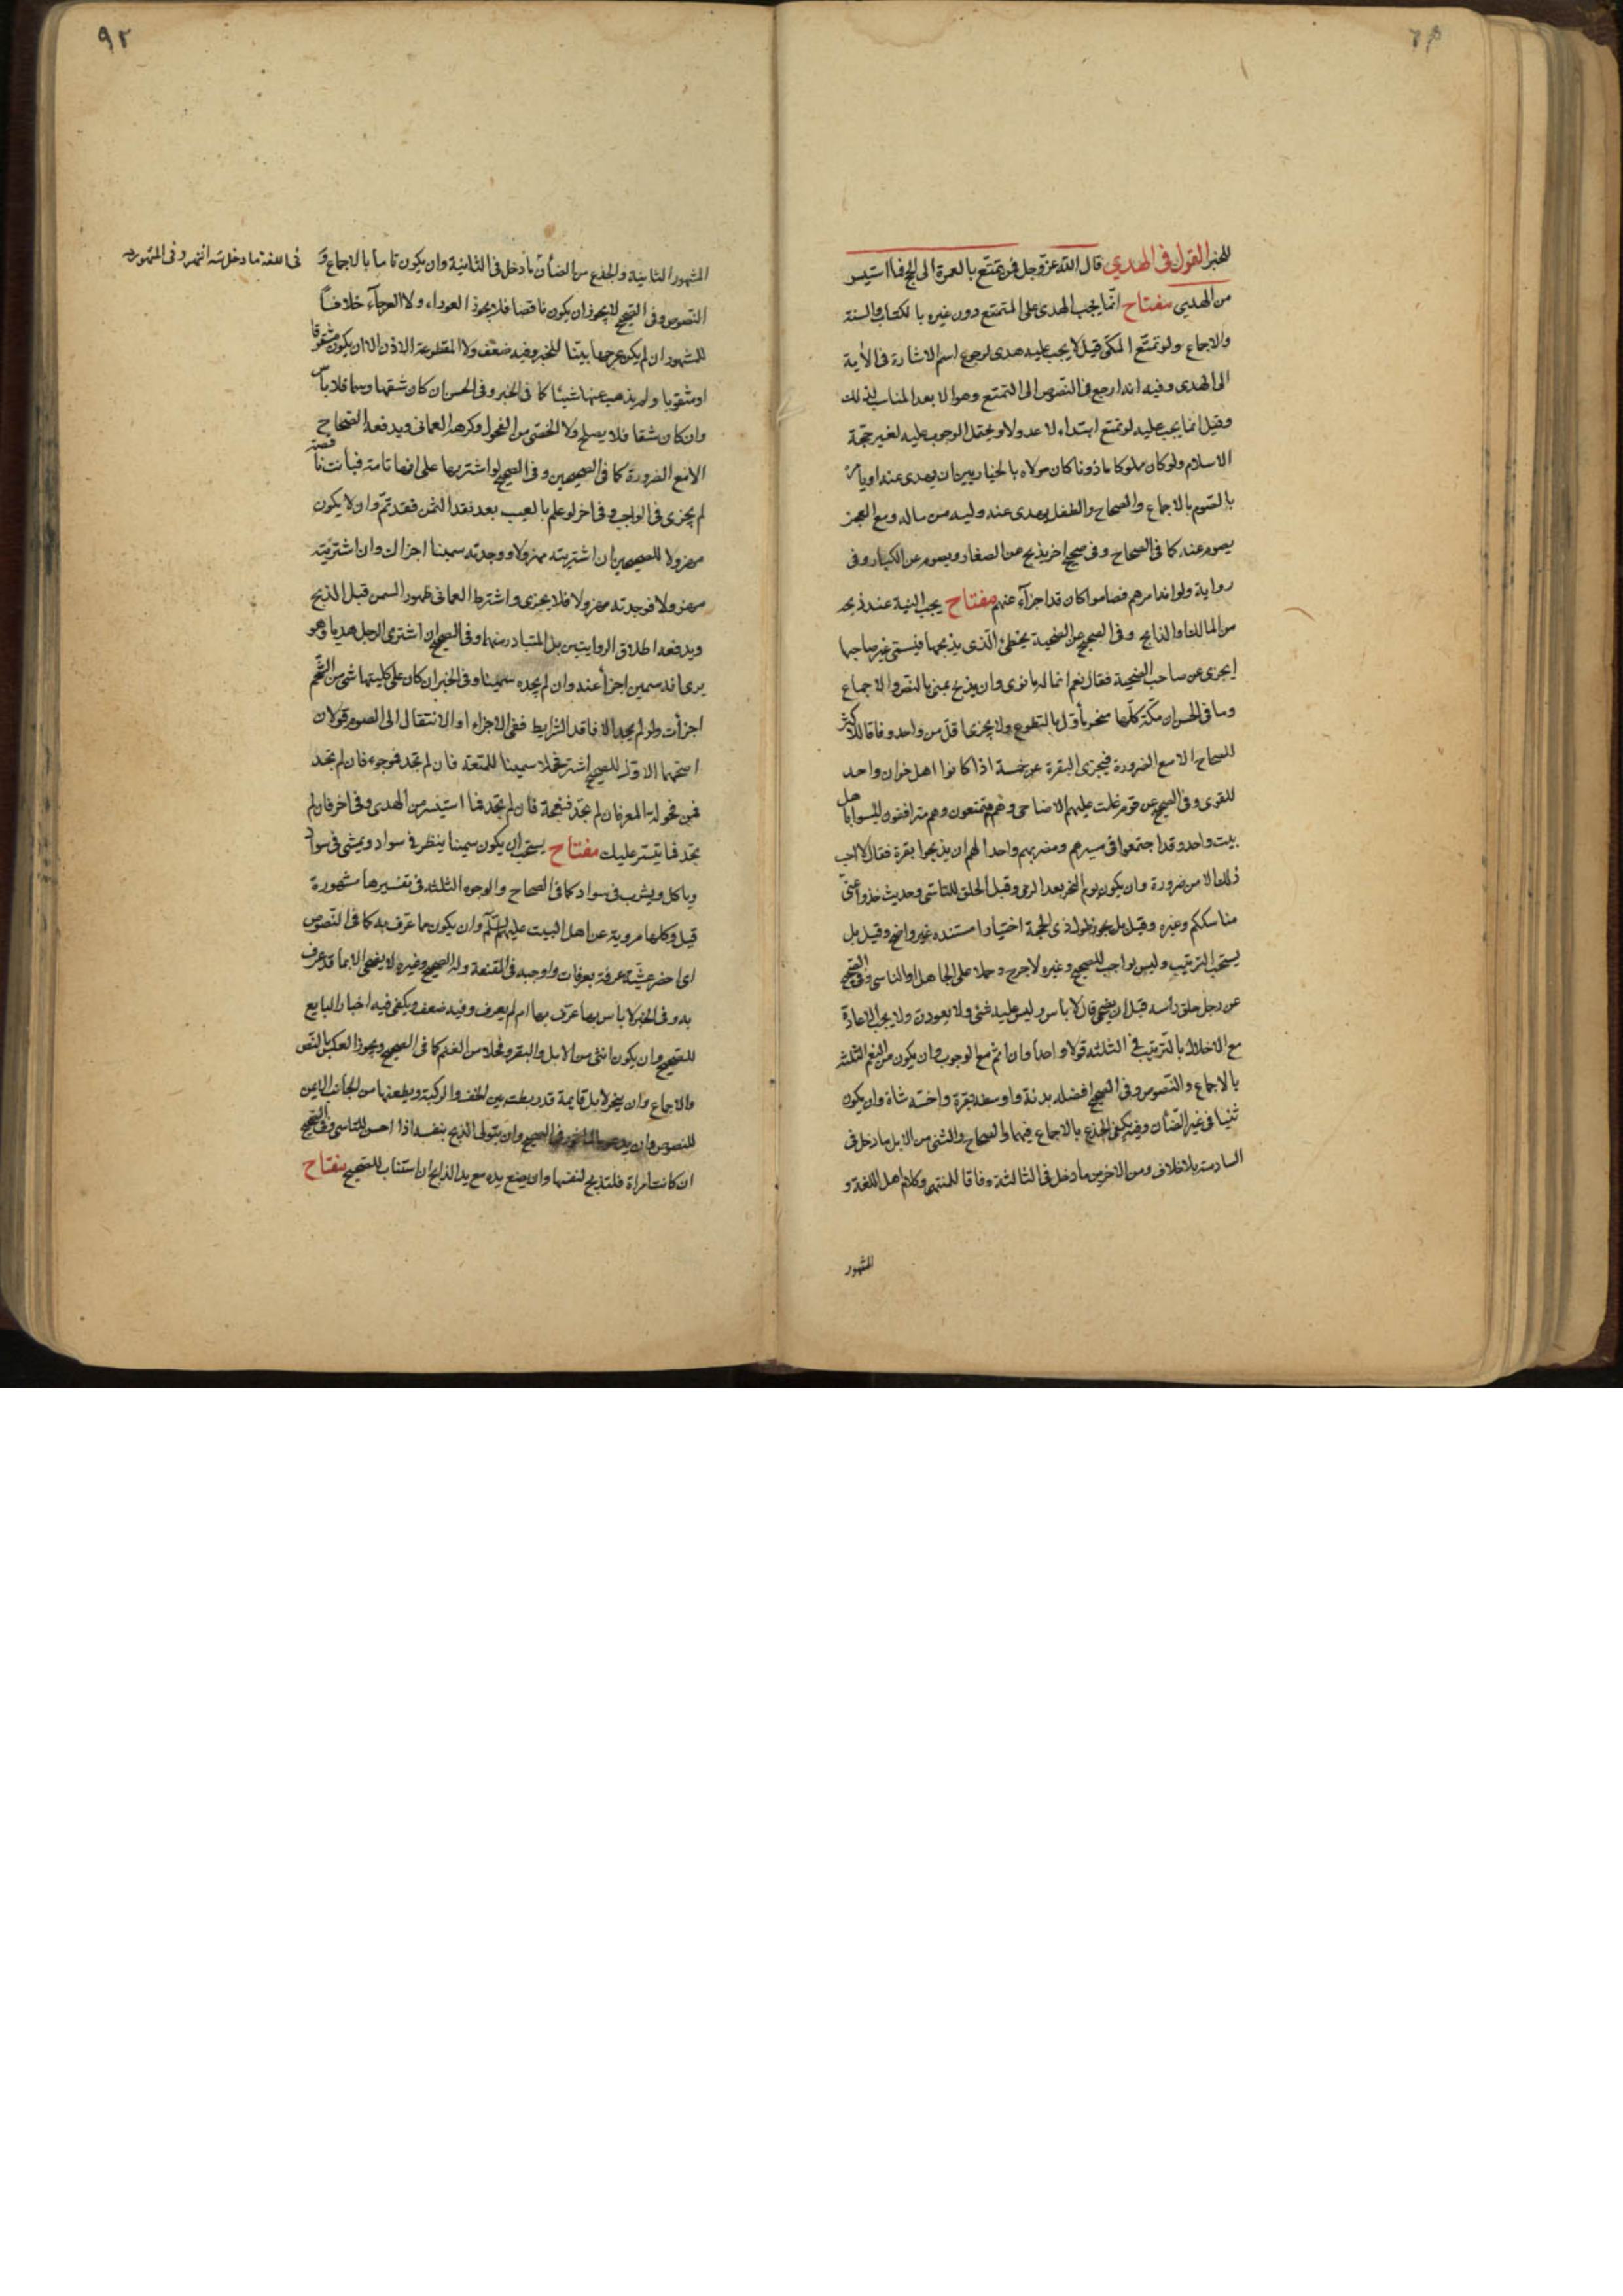 للخبر القول في الهدي قال الله عز وجل فمن تمتع بالعمرة الى الحج فما استيسر
من الهدي مفتاح انما يجب الهدى على المتمتع دون غيره بالكتاب والسنة
والاجماع ولو تمتع المكى قيل لا يجب عليه هدى لرجوع اسم الاشارة فى الآية
الى الهدى وفيه انه ارجع فى النصوص الى التمتع وهو الابعد المناسب لذلك
وقيل انما يجب عليه لو تمتع ابتداء لا عدولا ويحتمل الوجوب عليه لغير حجة
الاسلام ولو كان مملوكا ماذونا كان مولاه بالخيار بين ان يهدى عنه او يامره
بالصوم بالاجماع والصحاح والطفل يهدى عنه وليه من ماله ومع العجز
يصوم عنه كما فى الصحاح وفى صحيح اخر يذبح عن الصغار ويصوم عن الكبار وفى
رواية ولو انه امرهم فصاموا كان قد اجزاء عنهم مفتاح يجب النية عند ذبحه
من المالك او الذابح وفى الصحيح عن الضحية يخطئ الذى يذبحها فيسمى غير صاحبها
ايجزى عن صاحب الضحية فقال نعم انما له ما نوى وان يذبح بمنى بالنص والاجماع
وما فى الحسن ان مكة كلها منحر ماول بالتطوع ولا يجزى اقل من واحد وفاقا للاكثر
للصحاح الا مع الضرورة فيجزى البقرة عن خمسة اذا كانوا اهل خوان واحد
للقوى وفى الصحيح عن قوم غلت عليهم الاضاحى وهم متمتعون وهم مترافقون ليسوا باهل
بيت واحد وقد اجتمعوا فى مسيرهم ومضربهم واحد الهم ان يذبحوا بقرة فقال لا احب
ذلك الا من ضرورة وان يكون يوم النحر بعد الرمى وقبل الحلق للتاسى وحديث خذوا عنى
مناسككم وغيره وقيل بل يجوز طول ذى الحجة اختيارا مستنده غير واضح وقيل بل
يستحب الترتيب وليس بواجب للصحيح وغيره لاحرج وحملا على الجاهل او الناسى وفى الصحيح
عن رجل حلق راسه قبل ان يضحى قال لا باس وليس عليه شئ ولا يعودن ولا يجب الاعادة
مع الاخلال بالترتيب فى الثلثة قولا واحدا وان اثم مع الوجوب وان يكون من النعم الثلثة
بالاجماع والنصوص وفى الصحيح افضله بدنة واوسطه بقرة واخسه شاة وان يكون
ثنيا فى غير الضأن وفيه يكفى الجذع بالاجماع فيهما والصحاح والثنى من الابل ما دخل فى
السادسة بلا خلاف ومن الاخرين ما دخل فى الثالثة وفاقا للمنتهى وكلام اهل اللغة و
المشهور
المشهور الثانية والجذع من الضأن ما دخل فى الثانية وان يكون تاما بالاجماع و
فى اللغة ما دخل
النصوص وفى الصحيح لا يجوز ان يكون ناقصا فلا يجوز العوراء ولا العرجاء خلافا
للمشهور ان لم يكن عرجها بينا للخبر وفيه ضعف ولا المقطوعة الاذن الا ان يكون مشقوقا
او مثقوبا ولم يذهب عنها شيئا كما فى الخبر وفى الحسن ان كان شقها وسما فلا باس
وان كان شقا فلا يصلح ولا الخصى من الفحول وكرهه العمانى ويدفعه الصحاح
الا مع الضرورة كما فى الصحيحين وفى الصحيح لو اشتريها على انها تامة فبانت ناقصة
لم يجزى فى الواجب وفى اخر لو علم بالعيب بعد نقد الثمن فقد تم وان لا يكون
مهزولا للصحيحين ان اشتريته مهزولا ووجدته سمينا اجزاك وان اشتريته
مهزولا فوجدته مهزولا فلا يجزى واشترط العمانى ظهور السمن قبل الذبح
ويدفعه اطلاق الروايتين بل المتبادر منهما وفى الصحيح ان اشترى الرجل هديا وهو
يرى انه سمين اجزأ عنه وان لم يجده سمينا وفى الخبر ان كان على كليتها شئ من الشحم
اجزأت ولو لم يجد الا فاقد الشرايط ففى الاجزاء او الانتقال الى الصوم قولان
اصحهما الاول للصحيح اشتر فحلا سمينا للمتعة فان لم تجد فموجوء فان لم تجد
فمن فحولة المعز فان لم تجد فنعجة فان لم تجد فما استيسر من الهدى وفى اخر فان لم
تجد فما تيسر عليك مفتاح يستحب ان يكون سمينا ينظر فى سواد ويمشى فى سواد
وياكل ويشرب فى سواد كما فى الصحاح والوجوه الثلثة فى تفسيرها مشهورة
قيل وكلها مروية عن اهل البيت عليهم السلم وان يكون مما عرف به كما فى النصوص
اى احضر عشية عرفة بعرفات واوجبه فى المقنعة وله الصحيح وغيره لا يضحى الا بما قد عرف
به وفى الخبر لا باس بها عرف بها ام لم يعرف وفيه ضعف ويكفى فيه اخبار البايع
للصحيح وان يكون انثى من الابل والبقر وفحلا من الغنم كما فى الصحيح ويجوز العكس بالنص
والاجماع وان ينحر الابل قايمة قد ربطت بين الخف والركبة ويطعنها من الجانب الايمن
للنصوص وان يدعو بالماثور فى الصحيح وان يتولى الذبح بنفسه اذا احسن للتاسى وفى الصحيح
ان كانت امراة فلتذبح لنفسها وان يضع يده مع يد الذابح ان استناب للصحيح مفتاح
٩٢